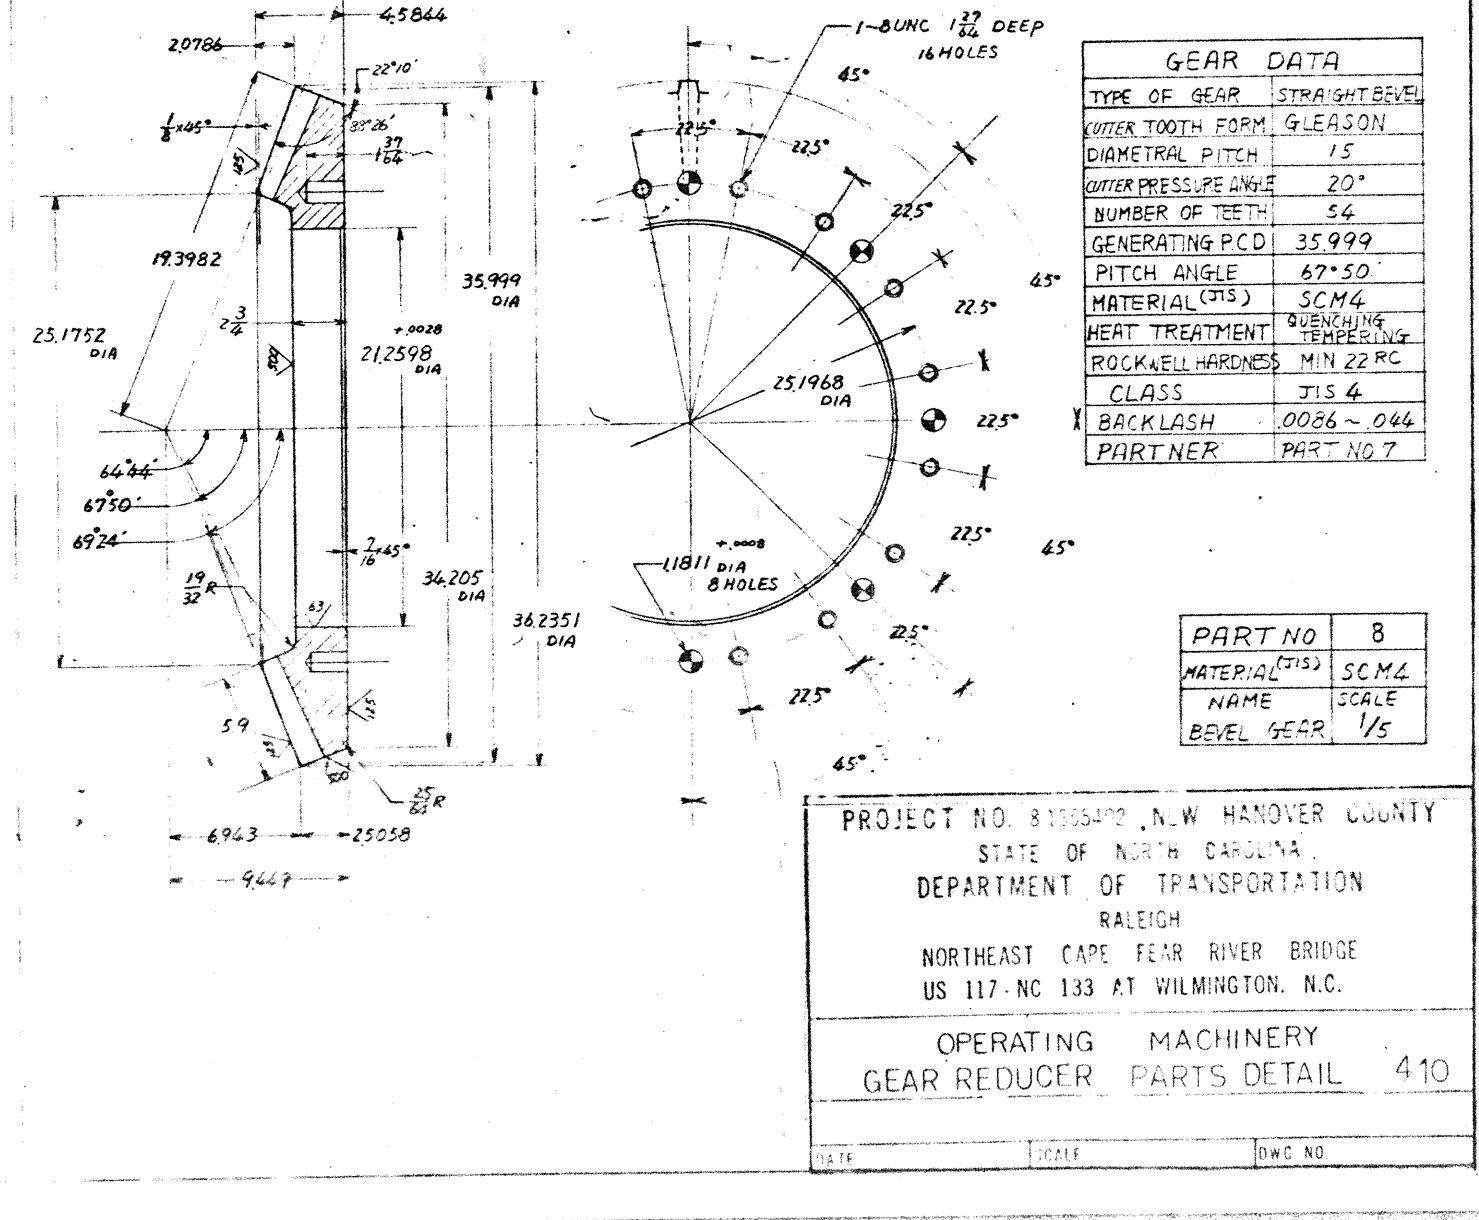 4.5844
2.0786
22°10'
1/8 × 45°
88°26'
1 37/64
125
19.3982
25.1752
DIA
2 3/4
500
+.0028
21.2598
DIA
35.999
DIA
64°44'
67°50'
69°24'
19/32 R
63
2/16 × 45°
34.205
DIA
36.2351
DIA
5.9
125
125
25/64 R
6.943
2.5058
9.449
1-8UNC 1 27/64 DEEP
16 HOLES
45°
22.5°
22.5°
22.5°
45°
22.5°
25.1968
DIA
22.5°
22.5°
45°
+.0008
1.1811 DIA
8 HOLES
22.5°
22.5°
45°
GEAR DATA
TYPE OF GEAR STRAIGHT BEVEL
CUTTER TOOTH FORM GLEASON
DIAMETRAL PITCH 1.5
CUTTER PRESSURE ANGLE 20°
NUMBER OF TEETH 54
GENERATING P.C.D 35.999
PITCH ANGLE 67°50'
MATERIAL (JIS) SCM4
HEAT TREATMENT QUENCHING TEMPERING
ROCKWELL HARDNESS MIN 22 RC
CLASS JIS 4
BACKLASH .0086 ~ .044
PARTNER PART NO 7
PART NO 8
MATERIAL (JIS) SCM4
NAME SCALE
BEVEL GEAR 1/5
PROJECT NO. NEW HANOVER COUNTY
STATE OF NORTH CAROLINA
DEPARTMENT OF TRANSPORTATION
RALEIGH
NORTHEAST CAPE FEAR RIVER BRIDGE
US 117-NC 133 AT WILMINGTON. N.C.
OPERATING MACHINERY
GEAR REDUCER PARTS DETAIL 410
DATE SCALE DWG NO.